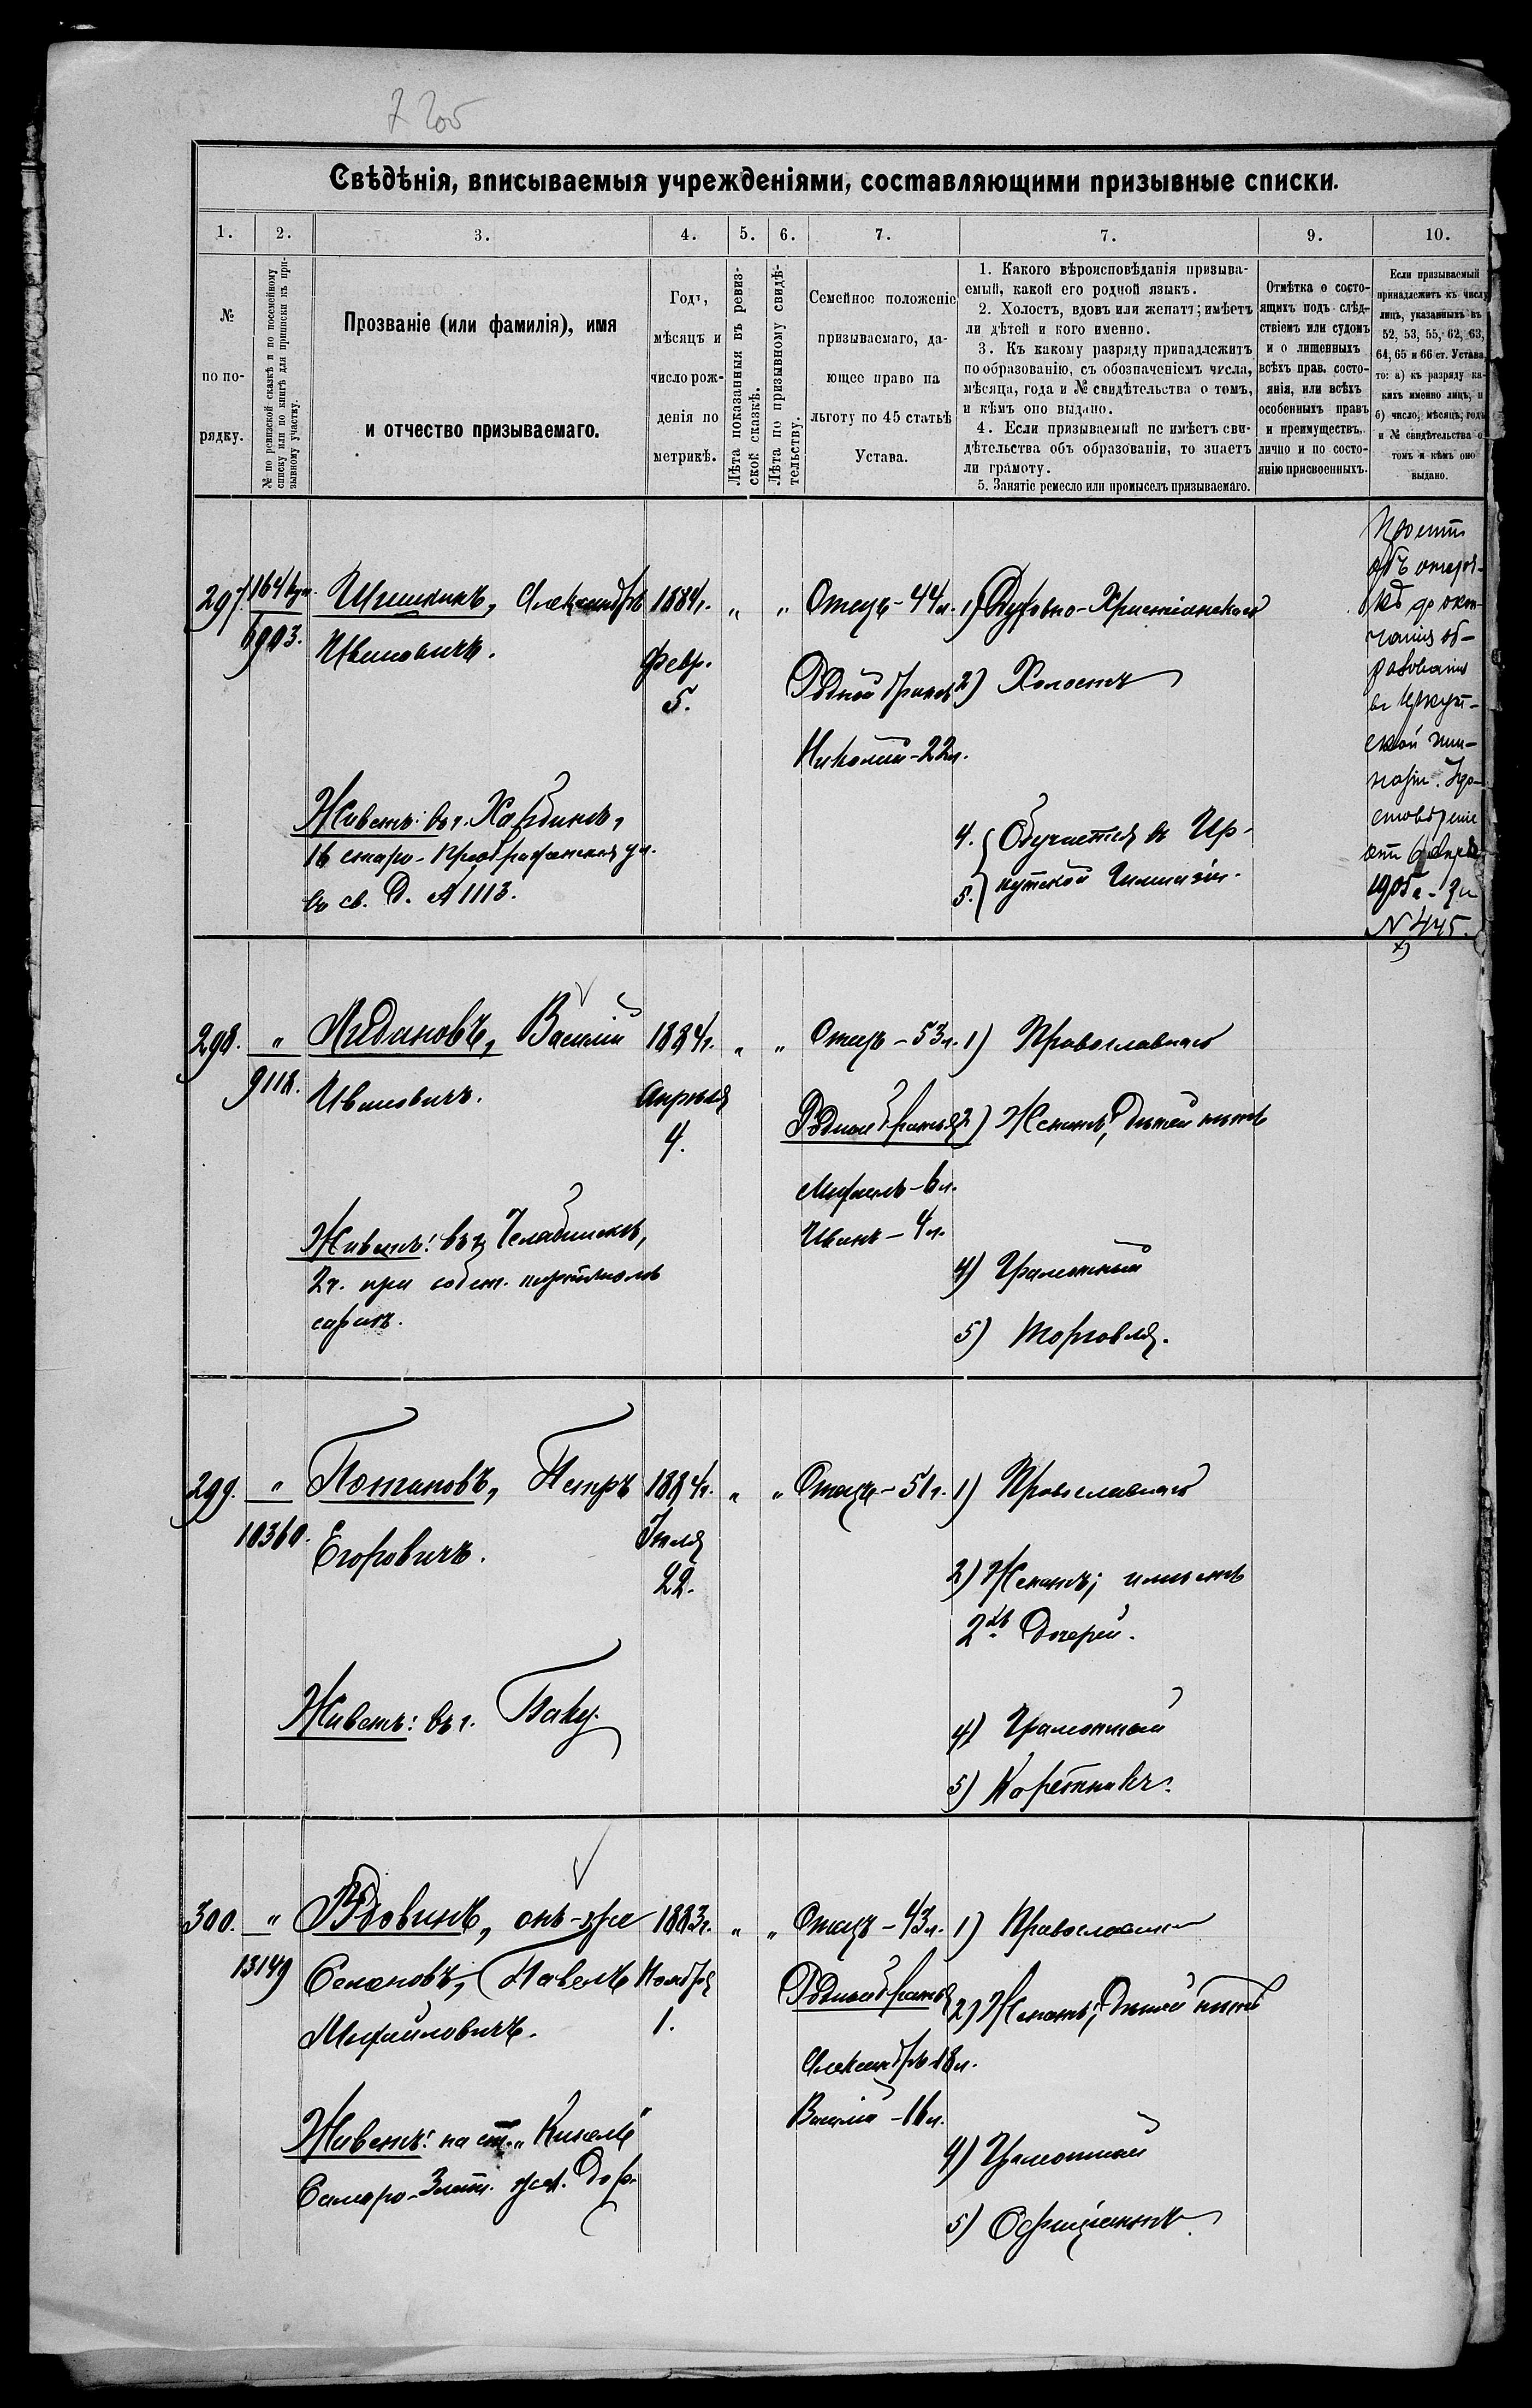 Свѣдѣнія, вписываемыя учрежденіями, составляющими призывные списки.
1. 2. 3. 4. 5. 6. 7. 7. 9. 10.
№
по по-
рядку.
№ по ревизской сказкѣ и по посемейному
списку или по книгѣ для приписки къ при-
зывному участку.
Прозваніе (или фамилія), имя
и отчество призываемаго.
Годъ,
мѣсяцъ и
число рож-
денія по
метрикѣ.
Лѣта показанныя въ ревиз-
ской сказкѣ.
Лѣта по призывному свидѣ-
тельству.
Семейное положеніе
призываемаго, да-
ющее право на
льготу по 45 статьѣ
Устава.
1. Какого вѣроисповѣданія призыва-
емый, какой его родной языкъ.
2. Холостъ, вдовъ или женатъ; имѣетъ
ли дѣтей и кого именно.
3. Къ какому разряду принадлежитъ
по образованію, съ обозначеніемъ числа,
мѣсяца, года и № свидѣтельства о томъ,
и кѣмъ оно выдано.
4. Если призываемый не имѣетъ сви-
дѣтельства объ образованіи, то знаетъ
ли грамоту.
5. Занятіе ремесло или промыселъ призываемаго.
Отмѣтка о состо-
ящихъ подъ слѣд-
ствіемъ или судомъ
и о лишенныхъ
всѣхъ прав. состо-
янія, или всѣхъ
особенныхъ правъ
и преимуществъ,
лично и по состо-
янію присвоенныхъ.
Если призываемый
принадлежитъ къ числу
лицъ, указанныхъ въ
52, 53, 55, 62, 63,
64, 65 и 66 ст. Устава,
то: а) къ разряду ка-
кихъ именно лицъ, и
б) число, мѣсяцъ, годъ
и № свидѣтельства о
томъ и кѣмъ оно
выдано.
297.
6903.
Шишкинъ, Александръ
Ивановичъ.
Живетъ: въ г. Харбинѣ,
въ св. д. № 1113.
1884г.
Февр.
5.
" "
Отецъ - 44л.
Родной братъ
Николай - 22л.
1) Духовно-Христіанскаго
2) Холостъ
4. Обучается въ Ир-
5. кутской Гимназіи.
Проситъ
объ отсроч-
кѣ до окон-
чанія об-
разованія
въ Иркут-
ской гим-
назіи. Удо-
стовѣреніе
1905г. за
№ 445.
298. "
9112.
Лидановъ, Василій
Ивановичъ.
Живетъ: въ г. Челябинскѣ,
1884г.
Апрѣля
4.
" "
Отецъ - 53л.
Родные братья
Михаилъ - 6л.
Иванъ - 4л.
1) Православнаго
2) Женатъ; дѣтей нѣтъ
4) Грамотный
5) Торговля.
299. "
10360.
Потаповъ, Петръ
Егоровичъ.
Живетъ: въ г. Баку.
1884г.
Іюля
22.
" "
Отецъ - 51г.
1) Православнаго
2) Женатъ; имѣетъ
2хъ дочерей.
4) Грамотный
5) Каретникъ.
300. "
13149
Вдовинъ, онъ-же
Семеновъ, Павелъ
Михайловичъ.
Живетъ: на ст. "Кинель"
Самаро-Злат. жел. дор.
1883г.
Ноября
1.
" "
Отецъ - 43л.
Родные братья
Александръ 18л.
Василій - 16л.
1) Православнаго
2) Женатъ; дѣтей нѣтъ
4) Грамотный
5) Офиціантъ.